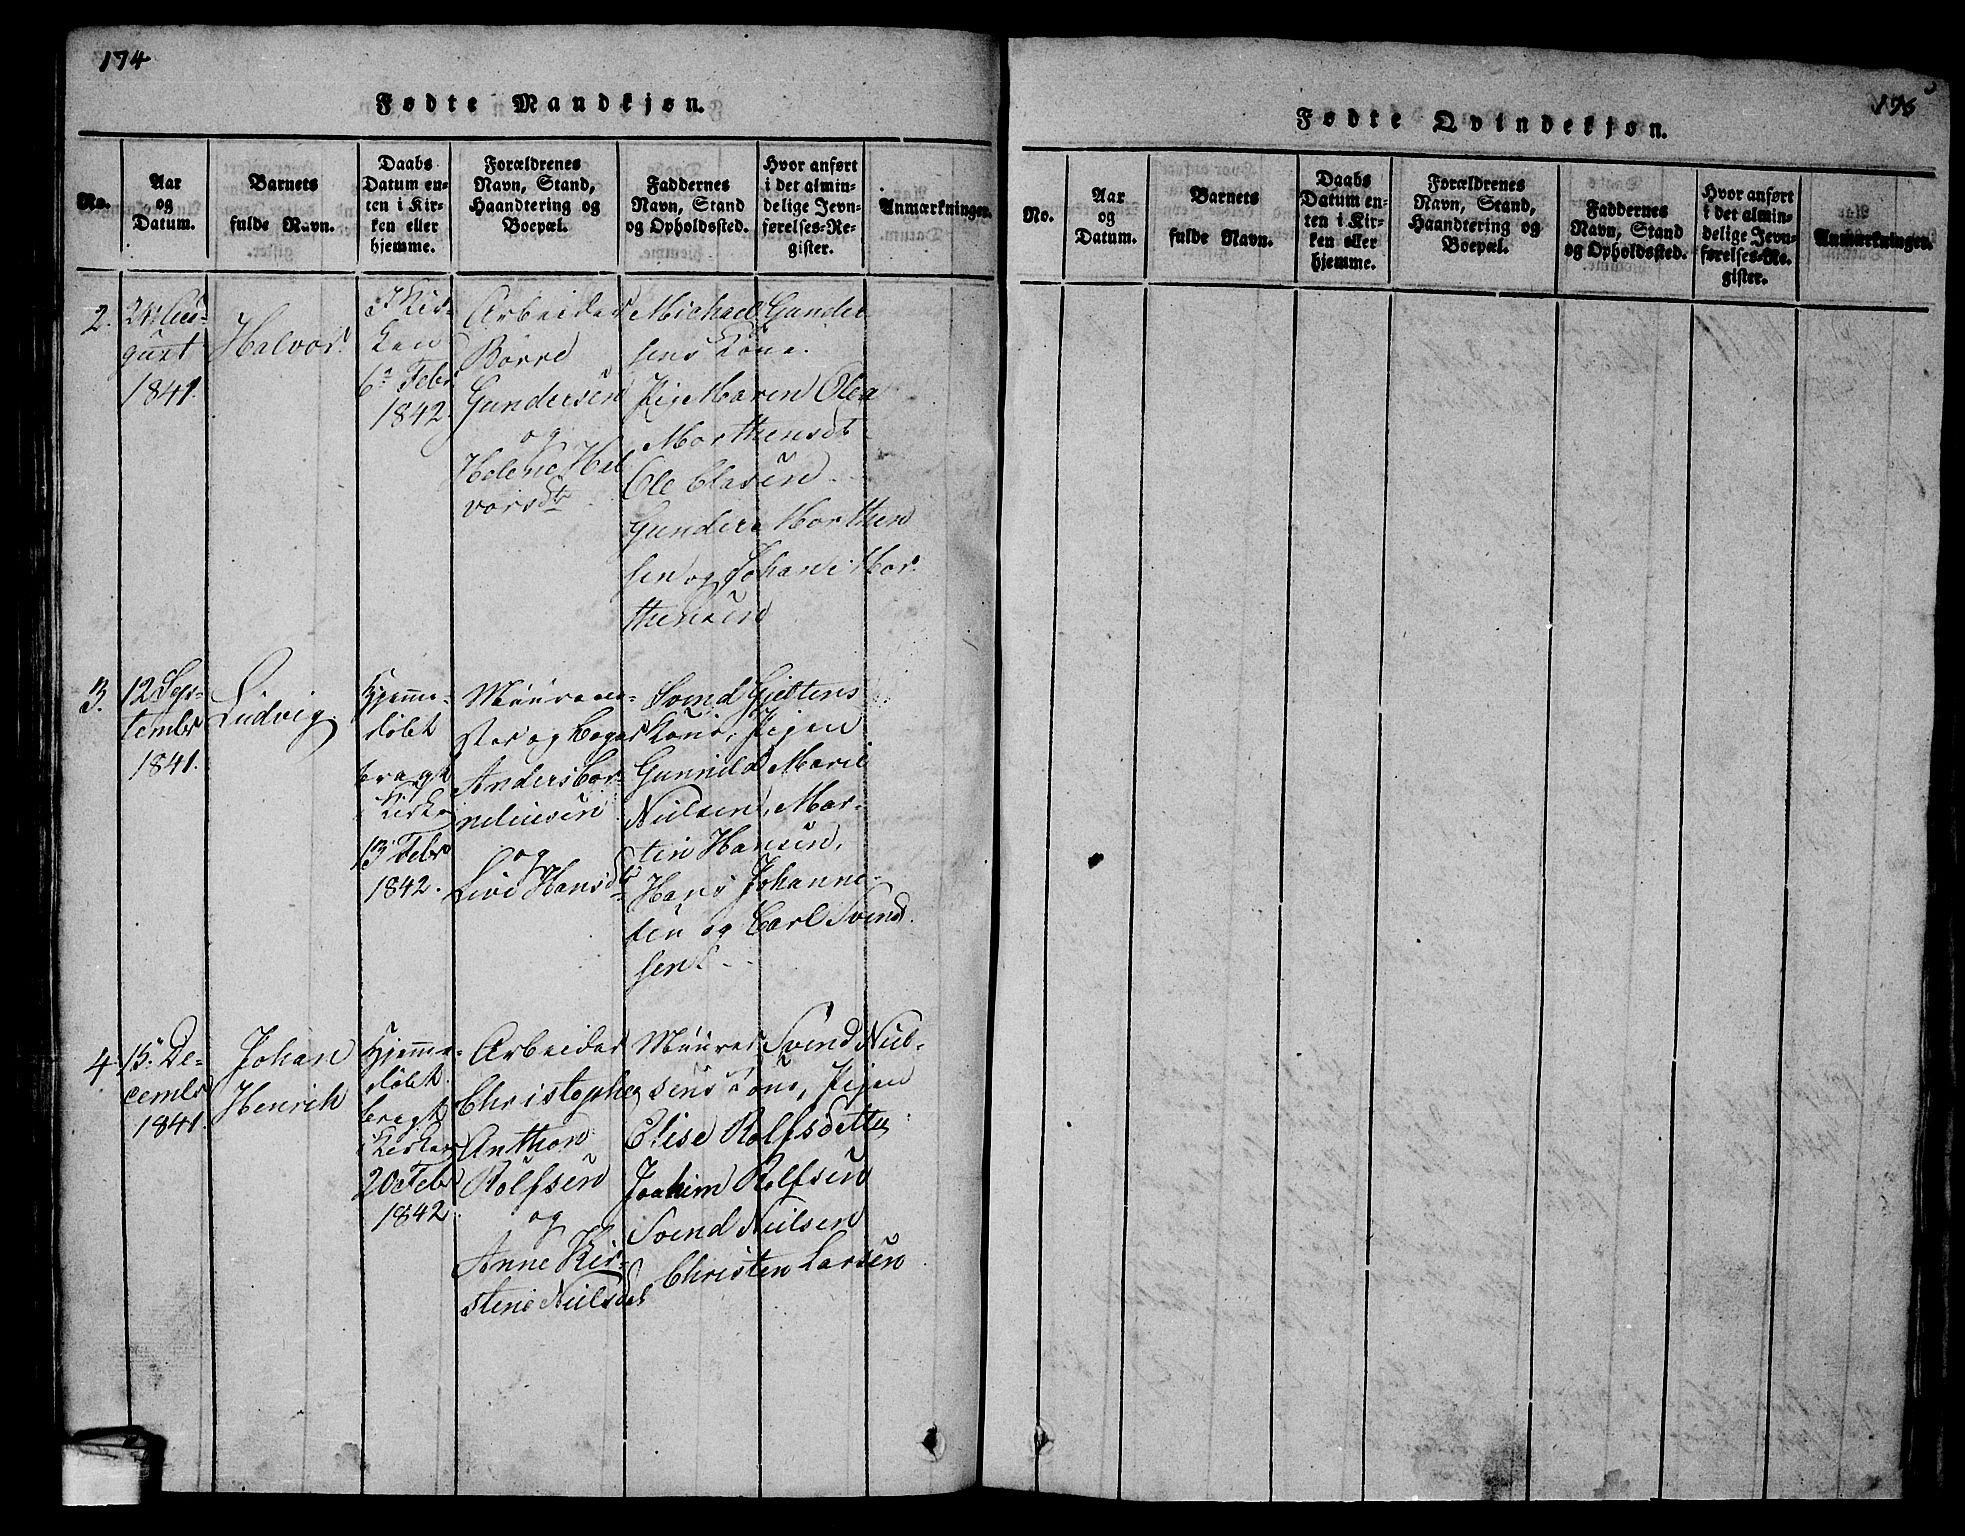 174
Fødte Mandkjøn.
No.
Aar
og
Datum.
Barnets
fulde Navn.
Daabs
Datum en-
ten i Kir-
ken eller
hjemme.
Forældrenes
Navn, Stand,
Haandtering og
Boepæl.
Faddernes
Navn, Stand
og Opholdssted.
Hvor anført
i det almin-
delige Jevn-
førelses-Re-
gister.
Anmærkninger.
2.
24 Au-
gust
1841.
Halvor.
I Kir-
ken
6te Febr
1842.
Arbeider
Börre
Gundersen
og
Helene Hal
vorsdtr
Michael Gunder
sens Kone.
Pig. Maren Olea
Morthensdt
Ole Clasen
Gunder Morthen
sen og Johan Mor
thensen
3.
12 Sep-
tembr
1841.
Ludvig
Hjemme-
döbt
bragt
i Kirken
13 Febr
1842.
Muurme-
ster og Bager
Anders Cor-
neliusen
og
Live Hansdtr
Svend Gjeltens
Kone, Pigen
Gunnild Marie
Nielsen, Mar-
tin Hansen,
Hans Johanne-
sen og Carl Svend
sen
4.
15 De-
cembr
1841.
Johan
Henrik
Hjemme-
döbt
bragt
i Kirken
20 Febr
1842.
Arbeider
Christopher
Anthon
Rolfsen
og
Anne Kir-
stene Nielsdat
Muurer Svend Niel-
sens Kone, Pigen
Elise Rolfsdatter
Joachim Rolfsen
Svend Nielsen
Christen Larsen
175
Fødte Qvindekjøn.
No.
Aar
og
Datum.
Barnets
fulde Navn.
Daabs
Datum en-
ten i Kir-
ken eller
hjemme.
Forældrenes
Navn, Stand,
Haandtering og
Boepæl.
Faddernes
Navn, Stand
og Opholdssted.
Hvor anført
i det almin-
delige Jevn-
førelses-Re-
gister.
Anmærkninger.